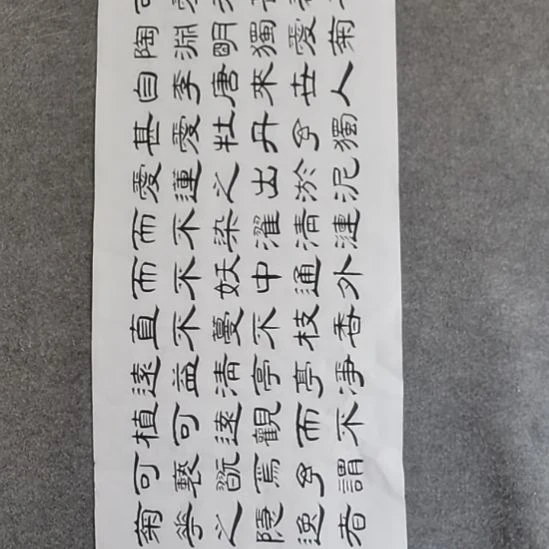 陶淵明獨愛菊
自李唐來世人
甚愛牡丹予獨
愛蓮之出淤泥
而不染濯清漣
而不妖中通外
直不蔓不枝香
遠益清亭亭淨
植可遠觀而不
可褻翫焉予謂
菊華之隱逸者